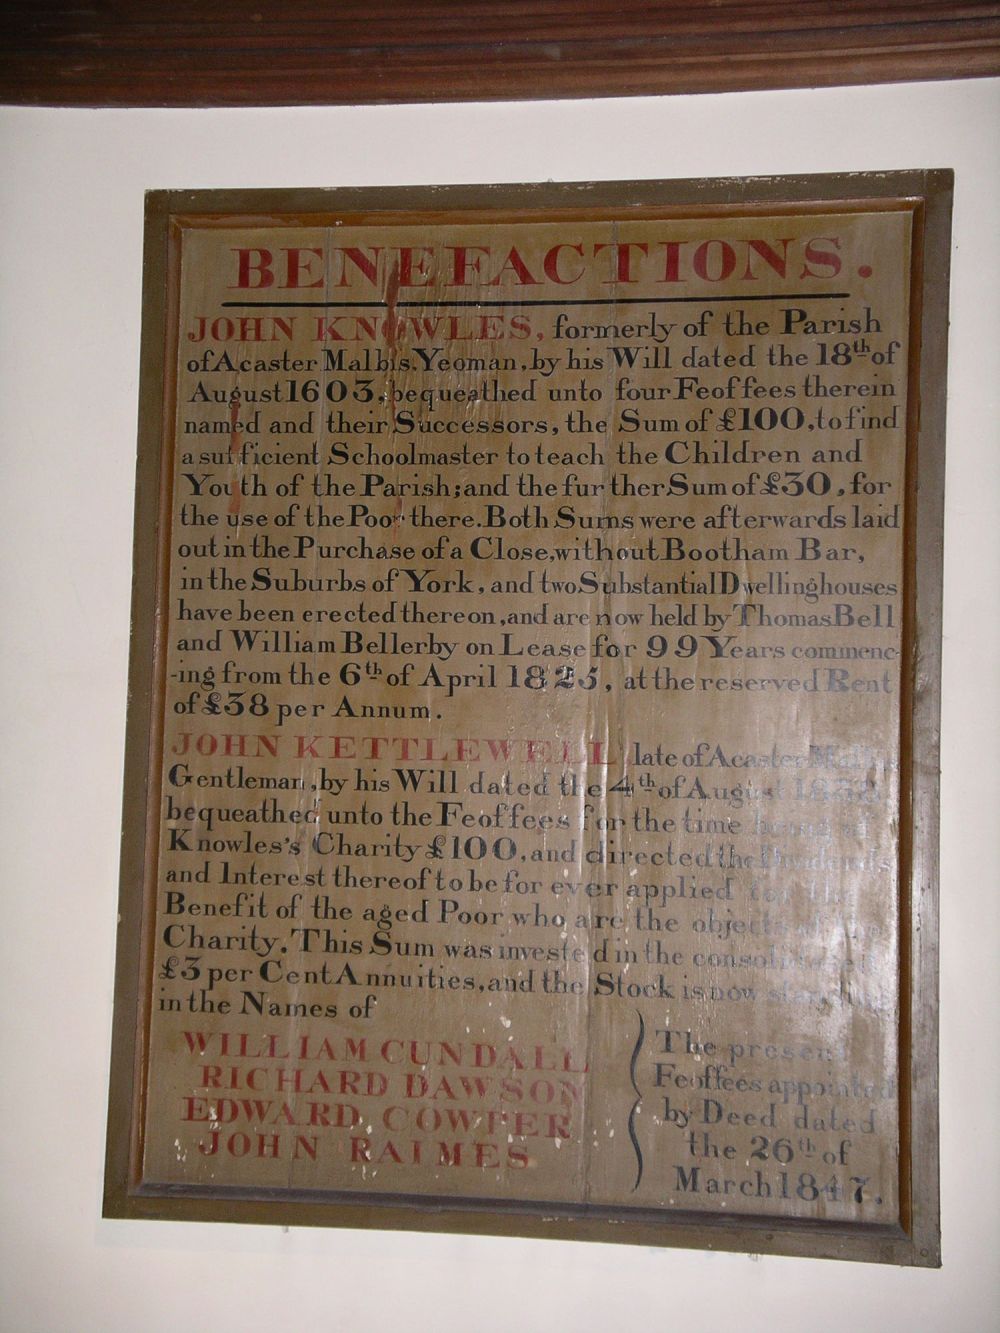 BENEFACTIONS.
JOHN KNOWLES, formerly of the Parish
of Acaster Malbis, Yeoman, by his Will dated the 18th of
August 1603, bequeathed unto four Feoffees therein
named and their Successors, the Sum of £100, to find
a sufficient Schoolmaster to teach the Children and
Youth of the Parish; and the further Sum of £30, for
the use of the Poor there. Both Sums were afterwards laid
out in the Purchase of a Close, without Bootham Bar,
in the Suburbs of York, and two Substantial Dwellinghouses
have been erected thereon, and are now held by Thomas Bell
and William Bellerby on Lease for 99 Years commenc-
-ing from the 6th of April 1825, at the reserved Rent
of £38 per Annum.
JOHN KETTLEWELL, late of Acaster Malbis
Gentleman, by his Will dated the 4th of August
bequeathed unto the Feoffees for the time being of
Knowles's Charity £100, and directed the Dividends
and Interest thereof to be for ever applied for the
Benefit of the aged Poor who are the objects of
Charity. This Sum was invested in the consolidated
£3 per Cent Annuities, and the Stock is now standing
in the Names of
WILLIAM CUNDALL
RICHARD DAWSON
EDWARD COWPER
JOHN RAIMES
The present
Feoffees appointed
by Deed dated
the 26th of
March 1847.